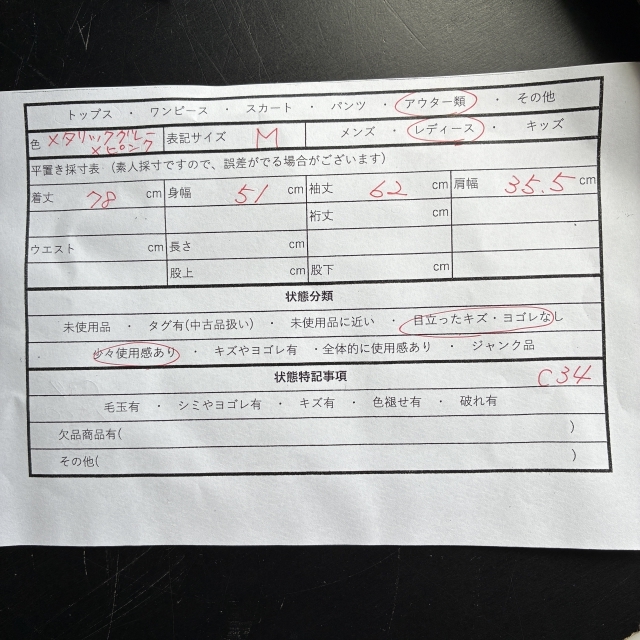 トップス ・ ワンピース ・ スカート ・ パンツ ・ アウター類 ・ その他
色 メタリックブルー×ピンク 表記サイズ M メンズ ・ レディース ・ キッズ
平置き採寸表 (素人採寸ですので、誤差がでる場合がございます)
着丈 78 cm 身幅 51 cm 袖丈 62 cm 肩幅 35.5 cm
裄丈 cm
ウエスト cm 長さ cm
股上 cm 股下 cm
状態分類
未使用品 ・ タグ有(中古品扱い) ・ 未使用品に近い ・ 目立ったキズ・ヨゴレなし
・ 少々使用感あり ・ キズやヨゴレ有 ・全体的に使用感あり ・ ジャンク品
状態特記事項 C34
毛玉有 ・ シミやヨゴレ有 ・ キズ有 ・ 色褪せ有 ・ 破れ有
欠品商品有( )
その他( )